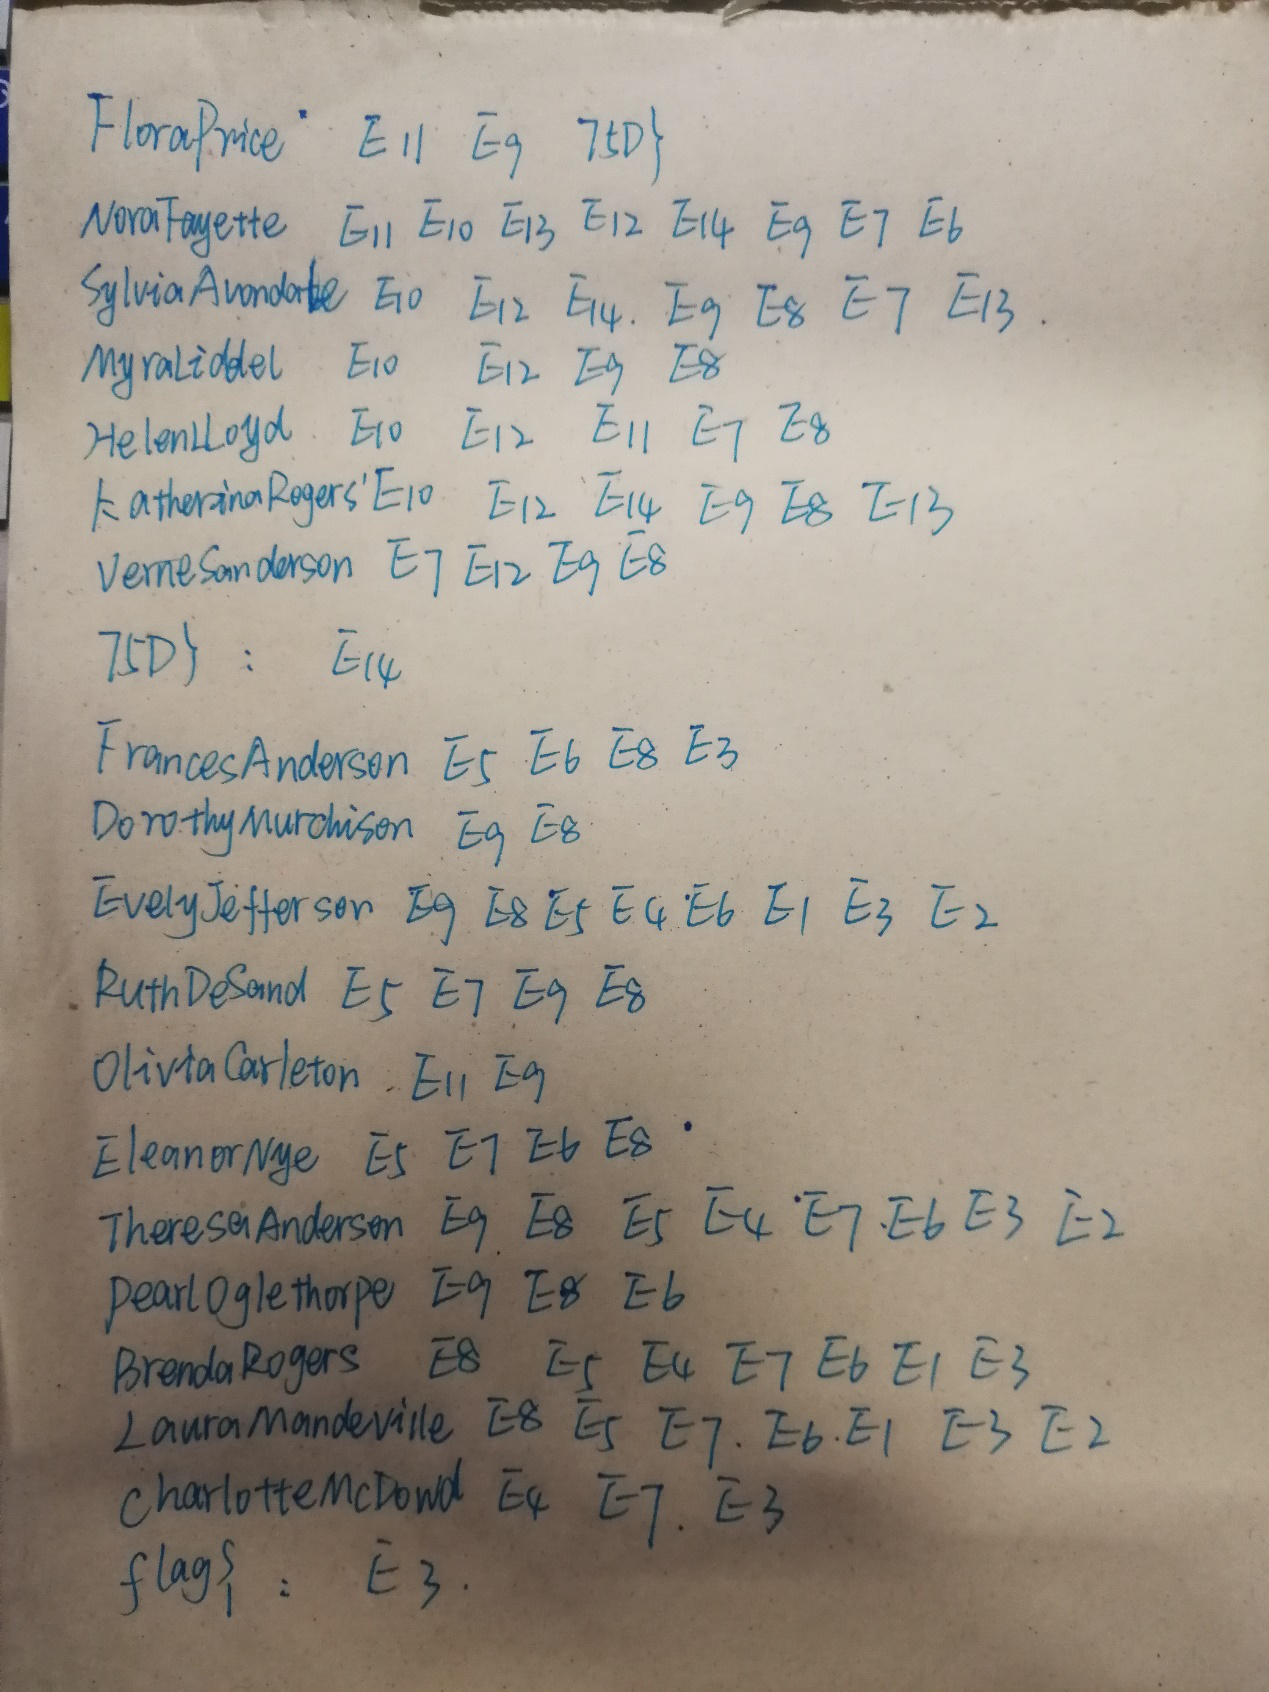 FloraPrice E11 E9 75D}
NoraFayette E11 E10 E13 E12 E14 E9 E7 E6
SylviaAvondale E10 E12 E14. E9 E8 E7 E13.
MyraLiddel E10 E12 E9 E8
HelenLLoyd E10 E12 E11 E7 E8
KatherinaRogers E10 E12 E14 E9 E8 E13
VerneSanderson E7 E12 E9 E8
75D} : E14
FrancesAnderson E5 E6 E8 E3
DorothyMurchison E9 E8
EvelyJefferson E9 E8 E5 E4 E6 E1 E3 E2
RuthDeSand E5 E7 E9 E8
OliviaCarleton E11 E9
EleanorNye E5 E7 E6 E8
TheresaAnderson E9 E8 E5 E4 E7 E6 E3 E2
PearlOglethorpe E9 E8 E6
BrendaRogers E8 E5 E4 E7 E6 E1 E3
LauraMandeville E8 E5 E7. E6. E1 E3 E2
CharlotteMcDowd E4 E7. E3
flag{ : E3.